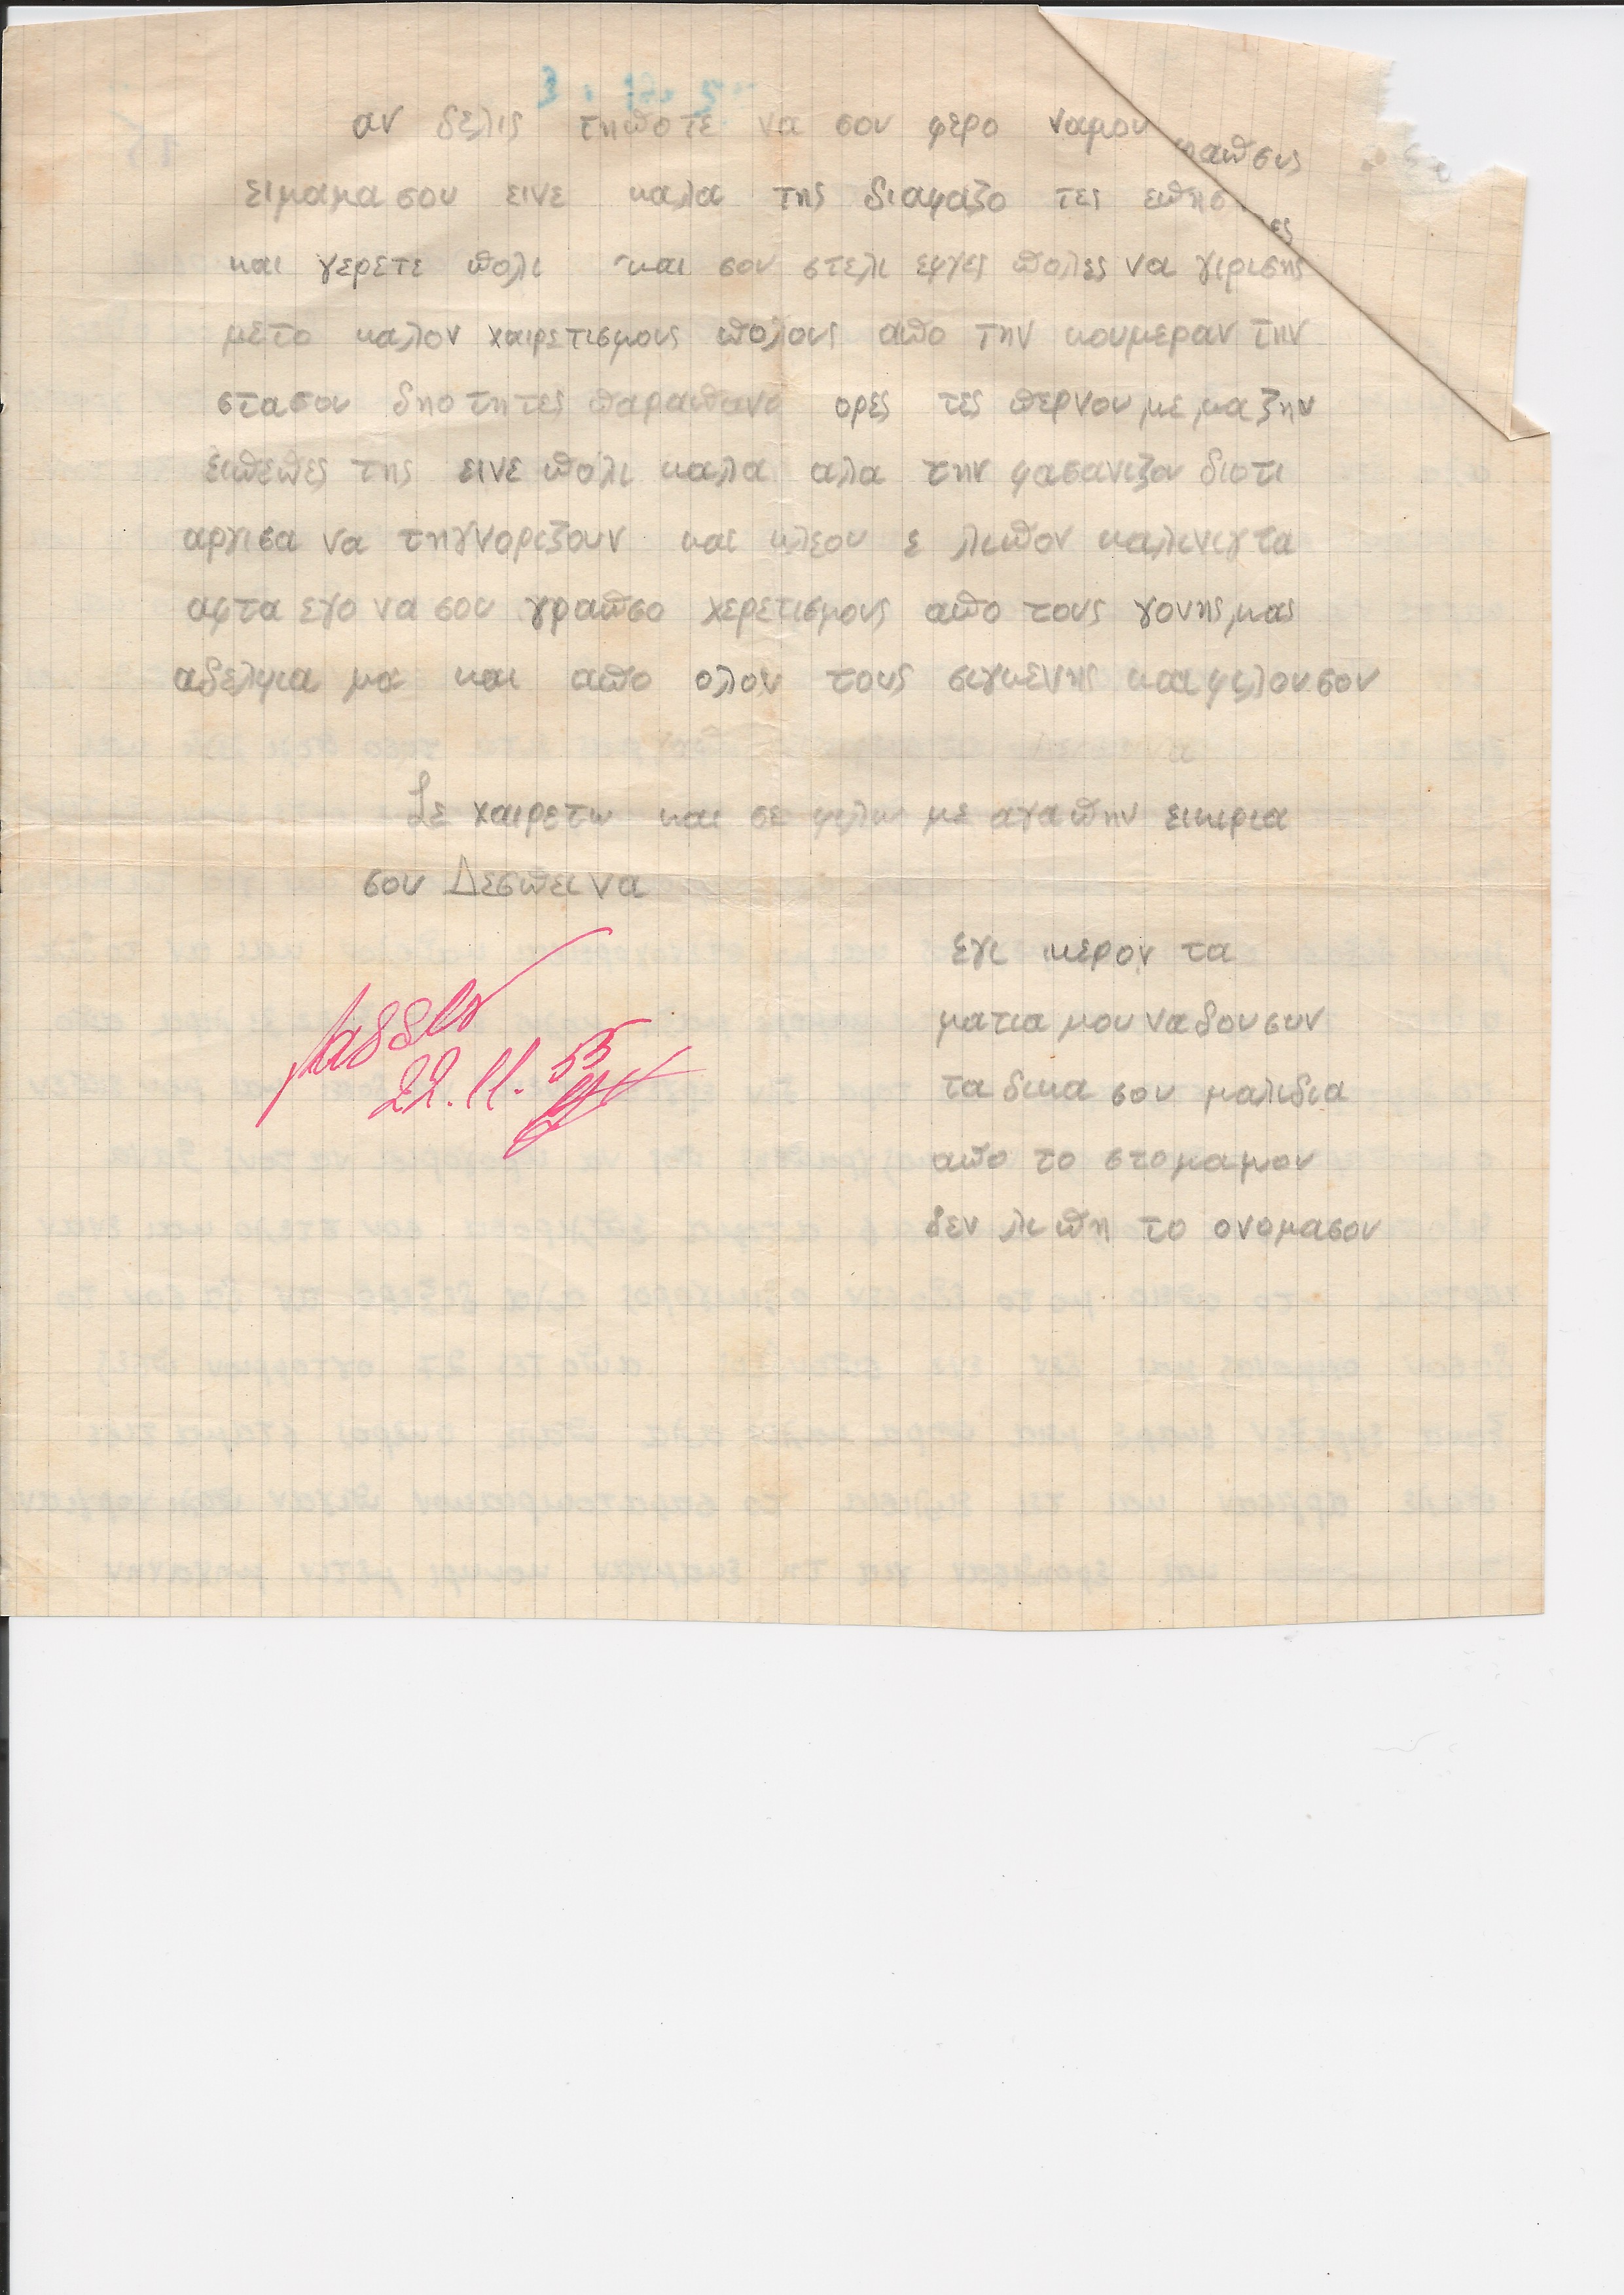 αν δελις τηποτε να σου φερο ναμου ραπσυς
ειμαμα σου εινε καλα της διαφαζο τες επησ ες
και γερετε πολι και σου στελι εφγες πολες να γιρισης
μετο καλον χαιρετισμους πολους απο την κουμεραν την
στασου δηοτητες παραπανο ορες τες περνουμε μαζην
επεπες της εινε πολι καλα αλα την φασανιζου διοτι
αργισα να τηγνοριζουν και κλεου ε λιπον καλινιγτα
αφτα εγο να σου γραπσο χερετισμους απο τους γονης μας
αδελφια μα και απο ολον τους σιγκενης και φιλους σου
Σε χαιρετω και σε φιλω με αγαπην εικιρια
σου Δεσπεινα
εγι κερον τα
ματια μου να δουσυν
τα δικα σου μαλιδια
απο το στομαμου
δεν λιπη το ονομασου
22.11.55